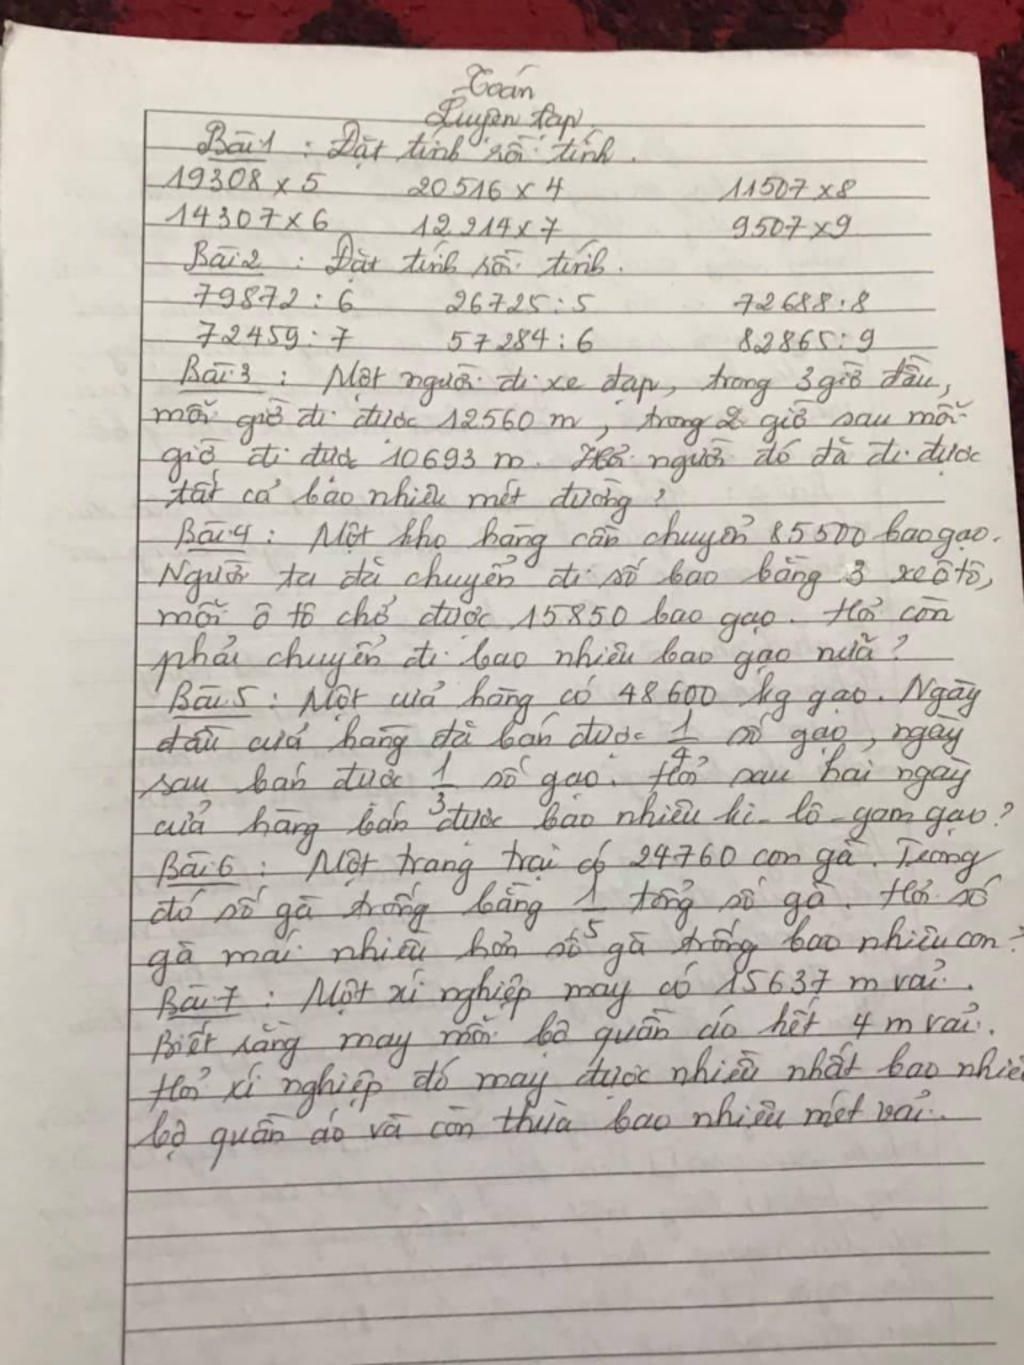 Toán
Luyện tập
Bài 1 : Đặt tính rồi tính.
19308 x 5 20516 x 4 11507 x 8
14307 x 6 12214 x 7 9507 x 9
Bài 2 : Đặt tính rồi tính.
79872 : 6 26725 : 5 72688 : 8
72459 : 7 57284 : 6 82865 : 9
Bài 3 : Một người đi xe đạp, trong 3 giờ đầu,
mỗi giờ đi được 12560 m, trong 2 giờ sau mỗi
giờ đi được 10693 m. Hỏi người đó đã đi được
tất cả bao nhiêu mét đường?
Bài 4 : Một kho hàng cần chuyển 85500 bao gạo.
Người ta đã chuyển đi số bao bằng 3 xe ô tô,
mỗi ô tô chở được 15850 bao gạo. Hỏi còn
phải chuyển đi bao nhiêu bao gạo nữa?
Bài 5 : Một cửa hàng có 48600 kg gạo. Ngày
đầu cửa hàng đã bán được 1/4 số gạo, ngày
sau bán được 1/3 số gạo. Hỏi sau hai ngày
cửa hàng bán được bao nhiêu ki-lô-gam gạo?
Bài 6 : Một trang trại có 24760 con gà. Trong
đó số gà trống bằng 1/5 tổng số gà. Hỏi số
gà mái nhiều hơn số gà trống bao nhiêu con?
Bài 7 : Một xí nghiệp may có 15637 m vải.
Biết rằng may mỗi bộ quần áo hết 4 m vải.
Hỏi xí nghiệp đó may được nhiều nhất bao nhiê
bộ quần áo và còn thừa bao nhiêu mét vải.